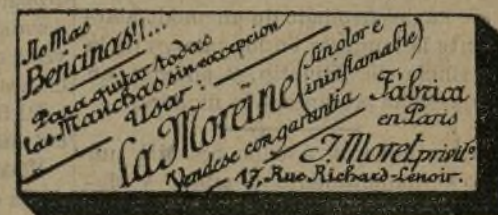 No Mas
Bencinas!!...
Para quitar todas
las Manchas sin excepcion
Usar:
La Moreïne (sin olor e
ininflamable)
Vendese con garantia
Fábrica
en Paris
J. Moret, privilº.
17, Rue Richard-Lenoir.